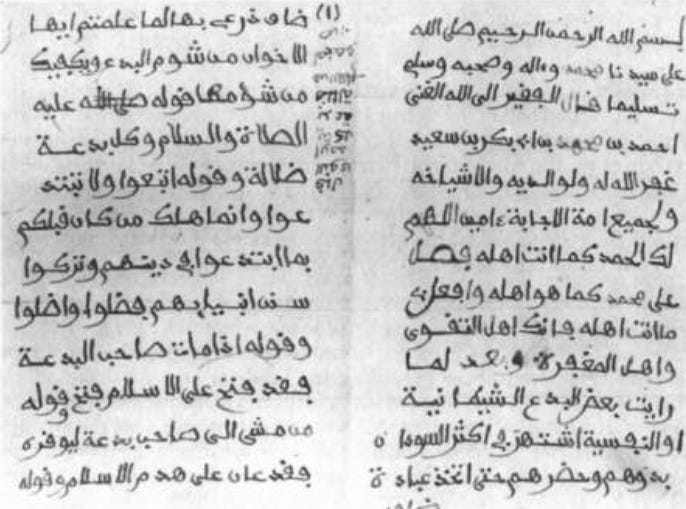 بسم الله الرحمن الرحيم صلى الله
على سيدنا محمد وءاله وصحبه وسلم
تسليما قال الفقير الى الله الغني
احمد بن محمد بن ابي بكر بن سعيد
غفر الله له ولوالديه والاشياخه
ولجميع امة الاجابة ءامين اللهم
لك الحمد كما انت اهله فصل
على محمد كما هو اهله وافعل بي
ما انت اهله فانك اهل التقوى
واهل المغفرة وبعد لما
رايت بعض البدع الشيطانية
او النفسية اشتهر في اكثر السودان
بدوهم وحضرهم حتى اتخذ عبادة
ضاق
(1)
ضاق ذرعي بها لما علمتم ايها
الاخوان من شؤم البدع ويكفيك
من شؤمها قوله صلى الله عليه
الصلاة والسلام وكل بدعة
ضلالة وقوله اتبعوا ولا تبتد
عوا وانما هلك من كان قبلكم
بما ابتدعوا في دينهم وتركوا
سنن انبيايهم فضلوا واضلوا
وقوله اذا مات صاحب البدعة
فقد فتح على الاسلام فتح وقوله
من مشى الى صاحب بدعة ليوقره
فقد عان على هدم الاسلام وقوله